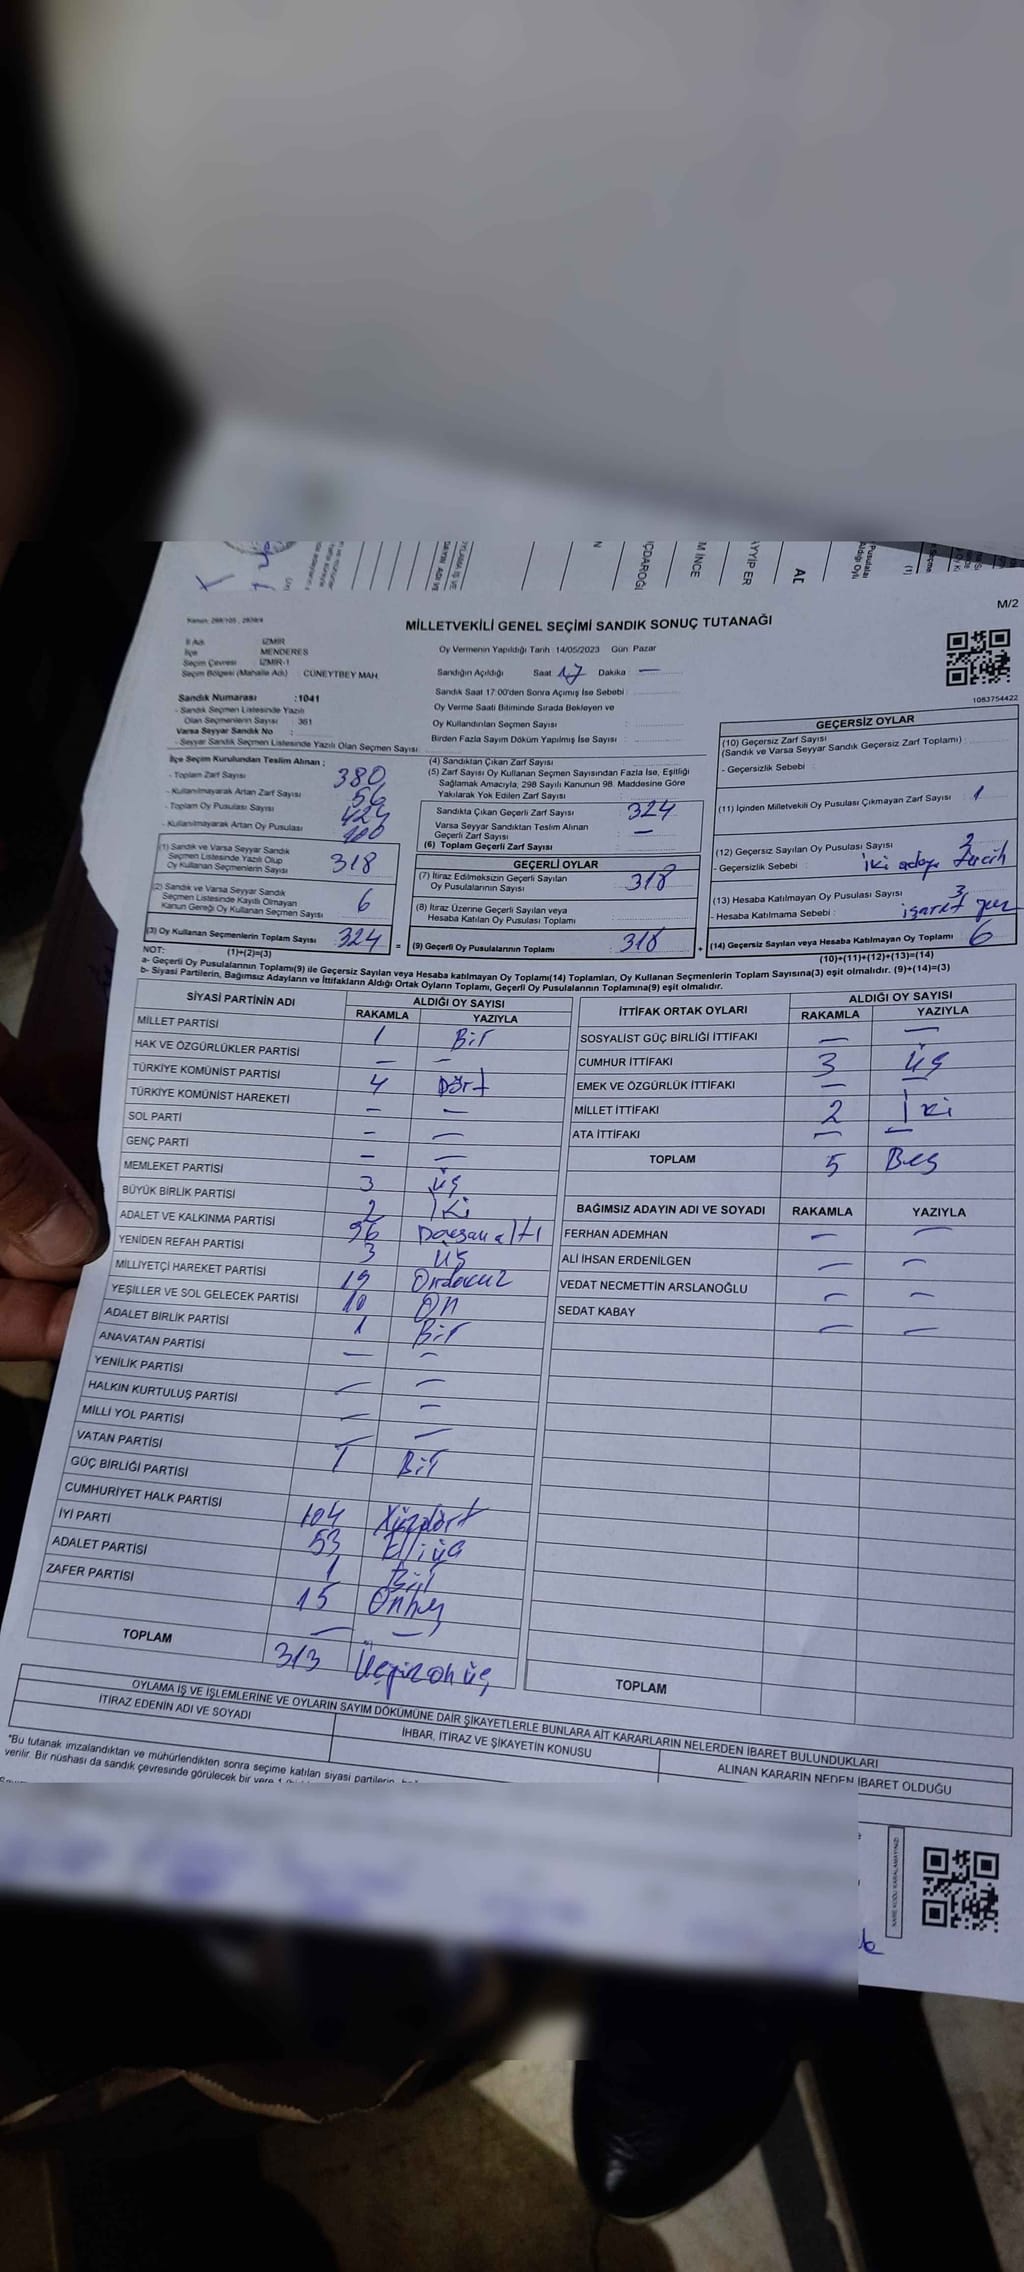 M/2
Kanun: 298/105, 2839/4
MİLLETVEKİLİ GENEL SEÇİMİ SANDIK SONUÇ TUTANAĞI
İl Adı : İZMİR
İlçe : MENDERES
Seçim Çevresi : İZMİR-1
Seçim Bölgesi (Mahalle Adı) : CÜNEYTBEY MAH.
Oy Vermenin Yapıldığı Tarih :14/05/2023 Gün: Pazar
Sandığın Açıldığı Saat 17 Dakika —
Sandık Saat 17:00'den Sonra Açımış İse Sebebi :
Oy Verme Saati Bitiminde Sırada Bekleyen ve
Oy Kullandırılan Seçmen Sayısı :
Birden Fazla Sayım Döküm Yapılmış İse Sayısı :
1083754422
Sandık Numarası :1041
- Sandık Seçmen Listesinde Yazılı
Olan Seçmenlerin Sayısı : 361
Varsa Seyyar Sandık No :
- Seyyar Sandık Seçmen Listesinde Yazılı Olan Seçmen Sayısı :
İlçe Seçim Kurulundan Teslim Alınan ;
- Toplam Zarf Sayısı : 380
- Kullanılmayarak Artan Zarf Sayısı : 56
- Toplam Oy Pusulası Sayısı : 424
- Kullanılmayarak Artan Oy Pusulası : 100
(1) Sandık ve Varsa Seyyar Sandık
Seçmen Listesinde Yazılı Olup
Oy Kullanan Seçmenlerin Sayısı : 318
(2) Sandık ve Varsa Seyyar Sandık
Seçmen Listesinde Kayıtlı Olmayan
Kanun Gereği Oy Kullanan Seçmen Sayısı : 6
(3) Oy Kullanan Seçmenlerin Toplam Sayısı : 324
(1)+(2)=(3)
(4) Sandıktan Çıkan Zarf Sayısı :
(5) Zarf Sayısı Oy Kullanan Seçmen Sayısından Fazla İse, Eşitliği
Sağlamak Amacıyla, 298 Sayılı Kanunun 98. Maddesine Göre
Yakılarak Yok Edilen Zarf Sayısı :
Sandıkta Çıkan Geçerli Zarf Sayısı : 324
Varsa Seyyar Sandıktan Teslim Alınan
Geçerli Zarf Sayısı : —
(6) Toplam Geçerli Zarf Sayısı :
GEÇERLİ OYLAR
(7) İtiraz Edilmeksizin Geçerli Sayılan
Oy Pusulalarının Sayısı : 318
(8) İtiraz Üzerine Geçerli Sayılan veya
Hesaba Katılan Oy Pusulası Toplamı :
(9) Geçerli Oy Pusulalarının Toplamı : 318
GEÇERSİZ OYLAR
(10) Geçersiz Zarf Sayısı
(Sandık ve Varsa Seyyar Sandık Geçersiz Zarf Toplamı) :
- Geçersizlik Sebebi :
(11) İçinden Milletvekili Oy Pusulası Çıkmayan Zarf Sayısı : 1
(12) Geçersiz Sayılan Oy Pusulası Sayısı : 2
- Geçersizlik Sebebi : iki adaya tercih
(13) Hesaba Katılmayan Oy Pusulası Sayısı : 3
- Hesaba Katılmama Sebebi : işaret yok
(14) Geçersiz Sayılan veya Hesaba Katılmayan Oy Toplamı : 6
(10)+(11)+(12)+(13)=(14)
NOT:
a- Geçerli Oy Pusulalarının Toplamı(9) ile Geçersiz Sayılan veya Hesaba katılmayan Oy Toplamı(14) Toplamları, Oy Kullanan Seçmenlerin Toplam Sayısına(3) eşit olmalıdır. (9)+(14)=(3)
b- Siyasi Partilerin, Bağımsız Adayların ve İttifakların Aldığı Ortak Oyların Toplamı, Geçerli Oy Pusulalarının Toplamına(9) eşit olmalıdır.
SİYASİ PARTİNİN ADI ALDIĞI OY SAYISI
RAKAMLA YAZIYLA
MİLLET PARTİSİ 1 Bir
HAK VE ÖZGÜRLÜKLER PARTİSİ — —
TÜRKİYE KOMÜNİST PARTİSİ 4 Dört
TÜRKİYE KOMÜNİST HAREKETİ — —
SOL PARTİ — —
GENÇ PARTİ — —
MEMLEKET PARTİSİ 3 üç
BÜYÜK BİRLİK PARTİSİ 2 İki
ADALET VE KALKINMA PARTİSİ 96 Doksan altı
YENİDEN REFAH PARTİSİ 3 üç
MİLLİYETÇİ HAREKET PARTİSİ 19 Ondokuz
YEŞİLLER VE SOL GELECEK PARTİSİ 10 On
ADALET BİRLİK PARTİSİ 1 Bir
ANAVATAN PARTİSİ — —
YENİLİK PARTİSİ — —
HALKIN KURTULUŞ PARTİSİ — —
MİLLİ YOL PARTİSİ — —
VATAN PARTİSİ 1 Bir
GÜÇ BİRLİĞİ PARTİSİ
CUMHURİYET HALK PARTİSİ 104 Yüzdört
İYİ PARTİ 53 Elliüç
ADALET PARTİSİ 1 Bir
ZAFER PARTİSİ 15 Onbeş
— —
TOPLAM 313 Üçyüzonüç
İTTİFAK ORTAK OYLARI ALDIĞI OY SAYISI
RAKAMLA YAZIYLA
SOSYALİST GÜÇ BİRLİĞİ İTTİFAKI — —
CUMHUR İTTİFAKI 3 üç
EMEK VE ÖZGÜRLÜK İTTİFAKI — —
MİLLET İTTİFAKI 2 İki
ATA İTTİFAKI — —
TOPLAM 5 Beş
BAĞIMSIZ ADAYIN ADI VE SOYADI RAKAMLA YAZIYLA
FERHAN ADEMHAN — —
ALİ İHSAN ERDENİLGEN — —
VEDAT NECMETTİN ARSLANOĞLU — —
SEDAT KABAY — —
TOPLAM
OYLAMA İŞ VE İŞLEMLERİNE VE OYLARIN SAYIM DÖKÜMÜNE DAİR ŞİKAYETLERLE BUNLARA AİT KARARLARIN NELERDEN İBARET BULUNDUKLARI
İTİRAZ EDENİN ADI VE SOYADI İHBAR, İTİRAZ VE ŞİKAYETİN KONUSU ALINAN KARARIN NEDEN İBARET OLDUĞU
"Bu tutanak imzalandıktan ve mühürlendikten sonra seçime katılan siyasi partilerin
verilir. Bir nüshası da sandık çevresinde görülecek bir yere
KARE KODU KARALAMAYINIZ!